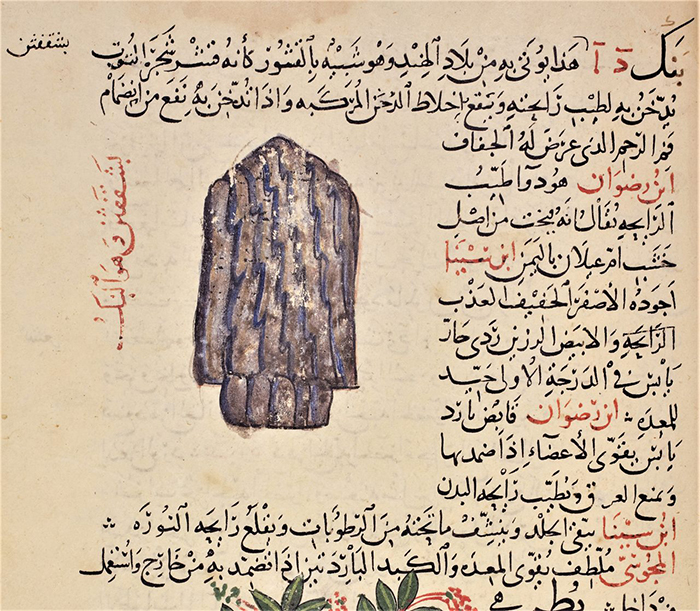 بشقفثن
بنك د آ هذا يوتى به من بلاد الهند وهو شبيه بالقشور كأنه قشر شجر التوت
يدخن به لطيب رائحته ويقع اخلاط الدخن المركبه واذا تدخن به نفع من انضمام
فم الرحم الذى عرض له الجفاف
ابن رضوان هو دوا طيب
الرايحه يقال انه ينحت من اصل
خشب ام غيلان باليمن ابن سينا
اجوده الاصفر الخفيف العذب
الرائحه والابيض الرزين ردى حار
يابس فى الدرجة الاولى جيد
للمعده ابن رضوان قابض بارد
يابس يقوى الأعضاء اذا ضمد بها
ويمنع العرق ويطيب رائحه البدن
ابن سينا ينقى الجلد وينشف ما تحته من الرطوبات ويقلع رايحه النوره
المجوسى ملطف يقوى المعده والكبد الباردتين اذا تضمد به من خارج واستعمل
بشقفثن وهو البنك